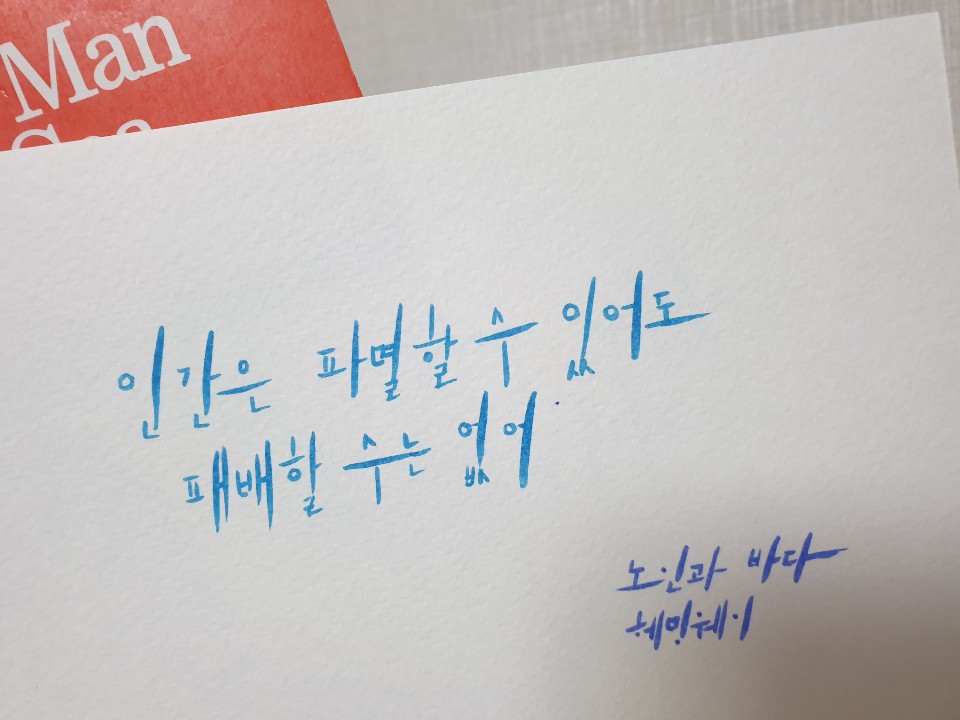 Man
Sea
인간은 파멸할 수 있어도
패배할 수는 없어
노인과 바다
헤밍웨이